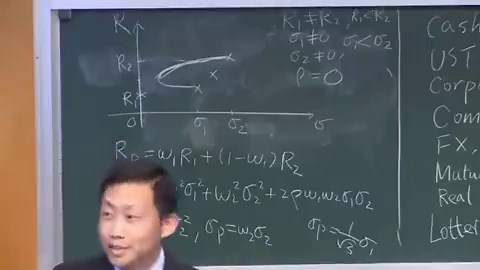 R
R₂
R₁
0 σ₁ σ₂ σ
R₁≠R₂, R₁<R₂
σ₁≠0 σ₁<σ₂
σ₂≠0
ρ=0
R_p=w₁R₁+(1-w₁)R₂
σ₁²+w₂²σ₂²+2ρw₁w₂σ₁σ₂
, σ_p=w₂σ₂ σ_p=1/√3 σ₁
Cash
UST
Corp
Com
FX,
Mutu
Real
Lotter